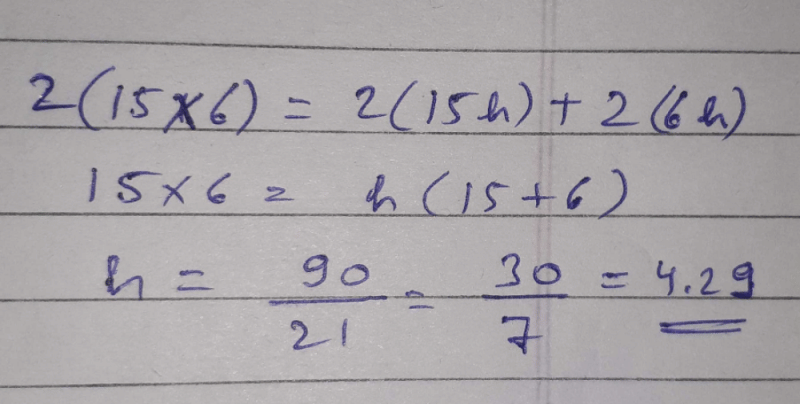 2(15×6) = 2(15h) + 2(6h)
15×6 = h(15+6)
h = 90/21 = 30/7 = 4.29